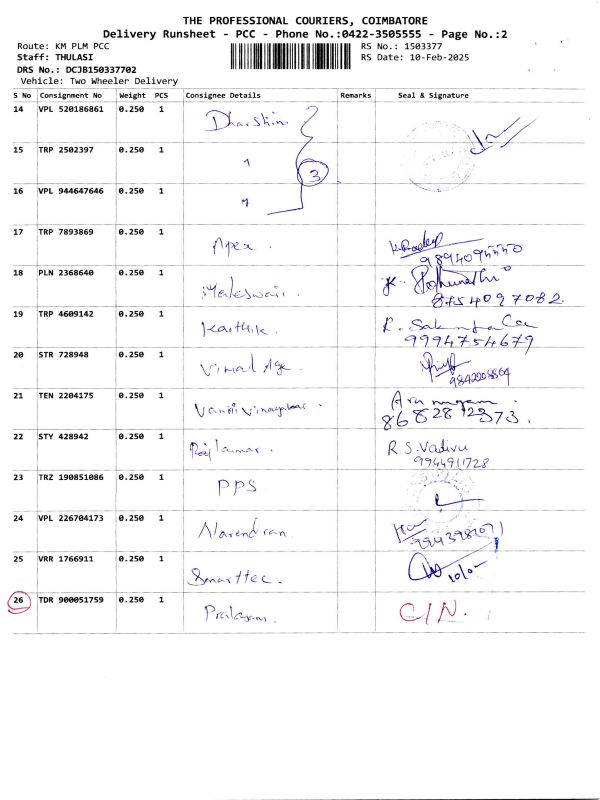 THE PROFESSIONAL COURIERS, COIMBATORE
Delivery Runsheet - PCC - Phone No.:0422-3505555 - Page No.:2
Route: KM PLM PCC RS No.: 1503377
Staff: THULASI RS Date: 10-Feb-2025
DRS No.: DCJB150337702
Vehicle: Two Wheeler Delivery
S No Consignment No Weight PCS Consignee Details Remarks Seal & Signature
14 VPL 520186861 0.250 1 Dharshini
15 TRP 2502397 0.250 1 3
16 VPL 944647646 0.250 1
17 TRP 7893869 0.250 1 Apex. 9894095550
18 PLN 2368640 0.250 1 K. 8754097082.
19 TRP 4609142 0.250 1 Karthik. R. 9994754679
20 STR 728948 0.250 1 Vimal Age.
21 TEN 2204175 0.250 1 Arumugam. 8682812373.
22 STY 428942 0.250 1 Rajkumar. R.S. Vadivu 9944911728
23 TRZ 190851086 0.250 1 PPS
24 VPL 226704173 0.250 1 Narendran.
25 VRR 1766911 0.250 1 Smarttec.
26 TDR 900051759 0.250 1 C/N.